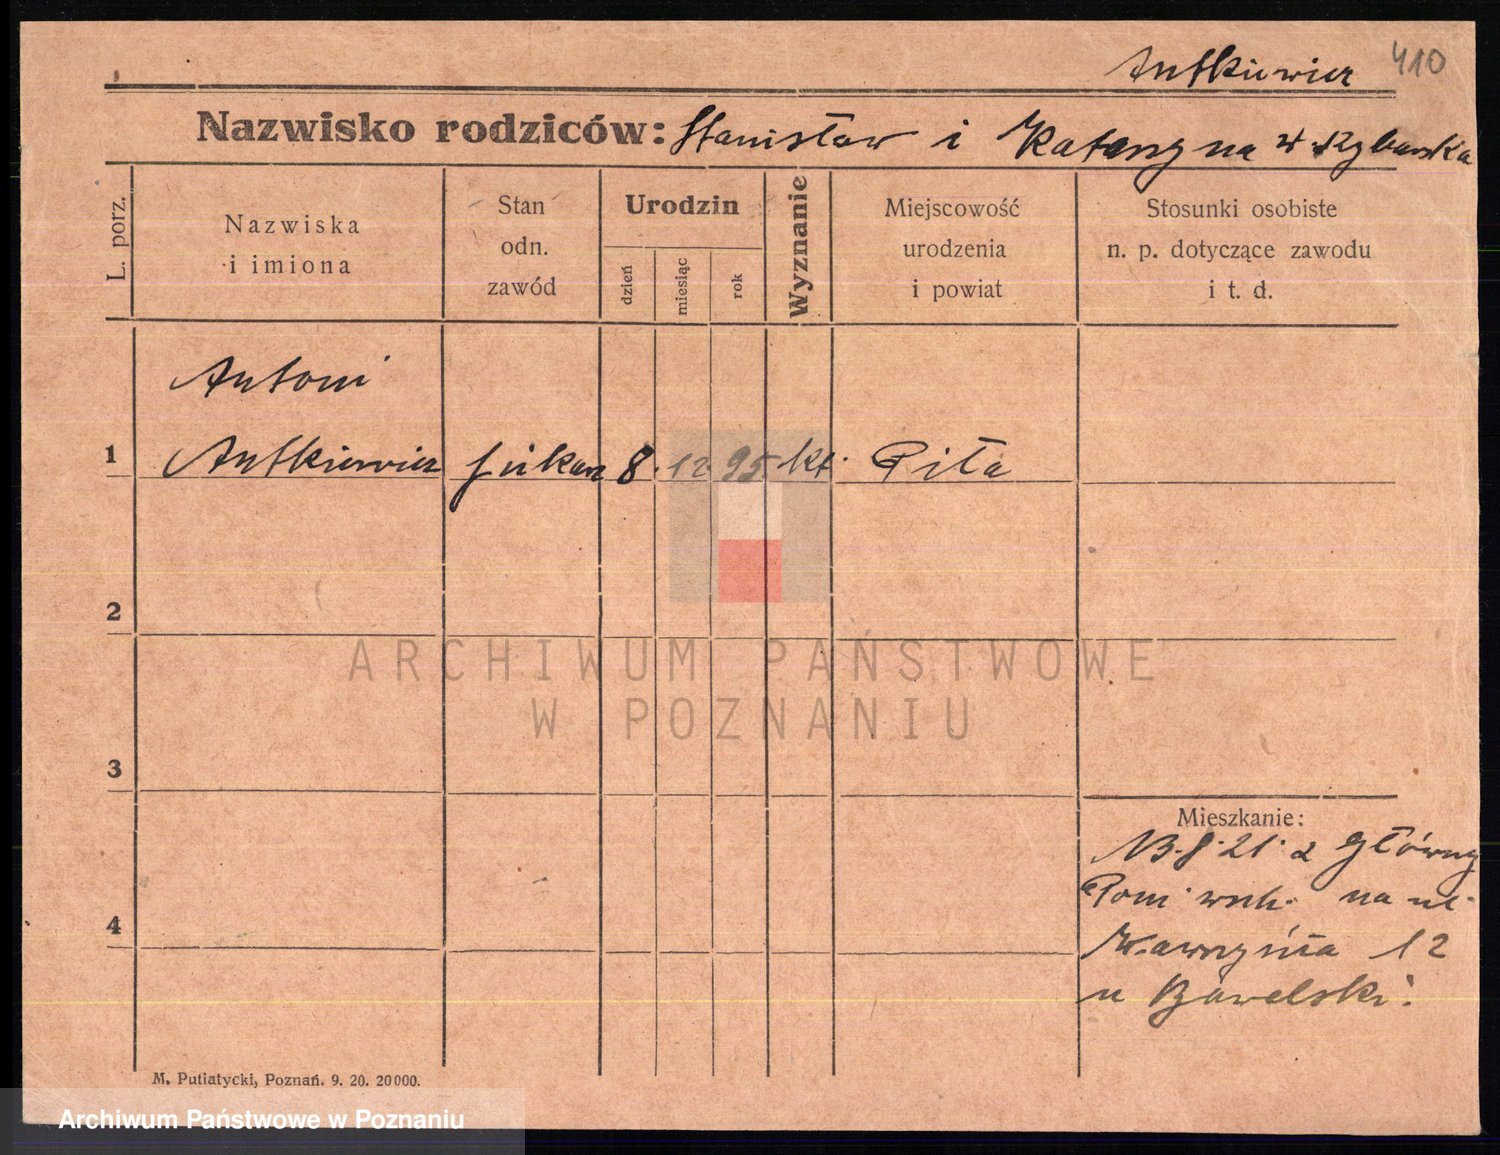 Antkiewicz 410
Nazwisko rodziców: Stanisław i Katarzyna z Rybarska
L. porz.
Nazwiska
i imiona
Stan
odn.
zawód
Urodzin
dzień
miesiąc
rok
Wyznanie
Miejscowość
urodzenia
i powiat
Stosunki osobiste
n. p. dotyczące zawodu
i t. d.
Antoni
1 Antkiewicz 8. 12 95 kt. Piła
2
ARCHIWUM PAŃSTWOWE
W POZNANIU
3
Mieszkanie:
21. Główny
na ul.
4
Wawrzyńca 12
u
M. Putiatycki, Poznań. 9. 20. 20000.
Archiwum Państwowe w Poznaniu